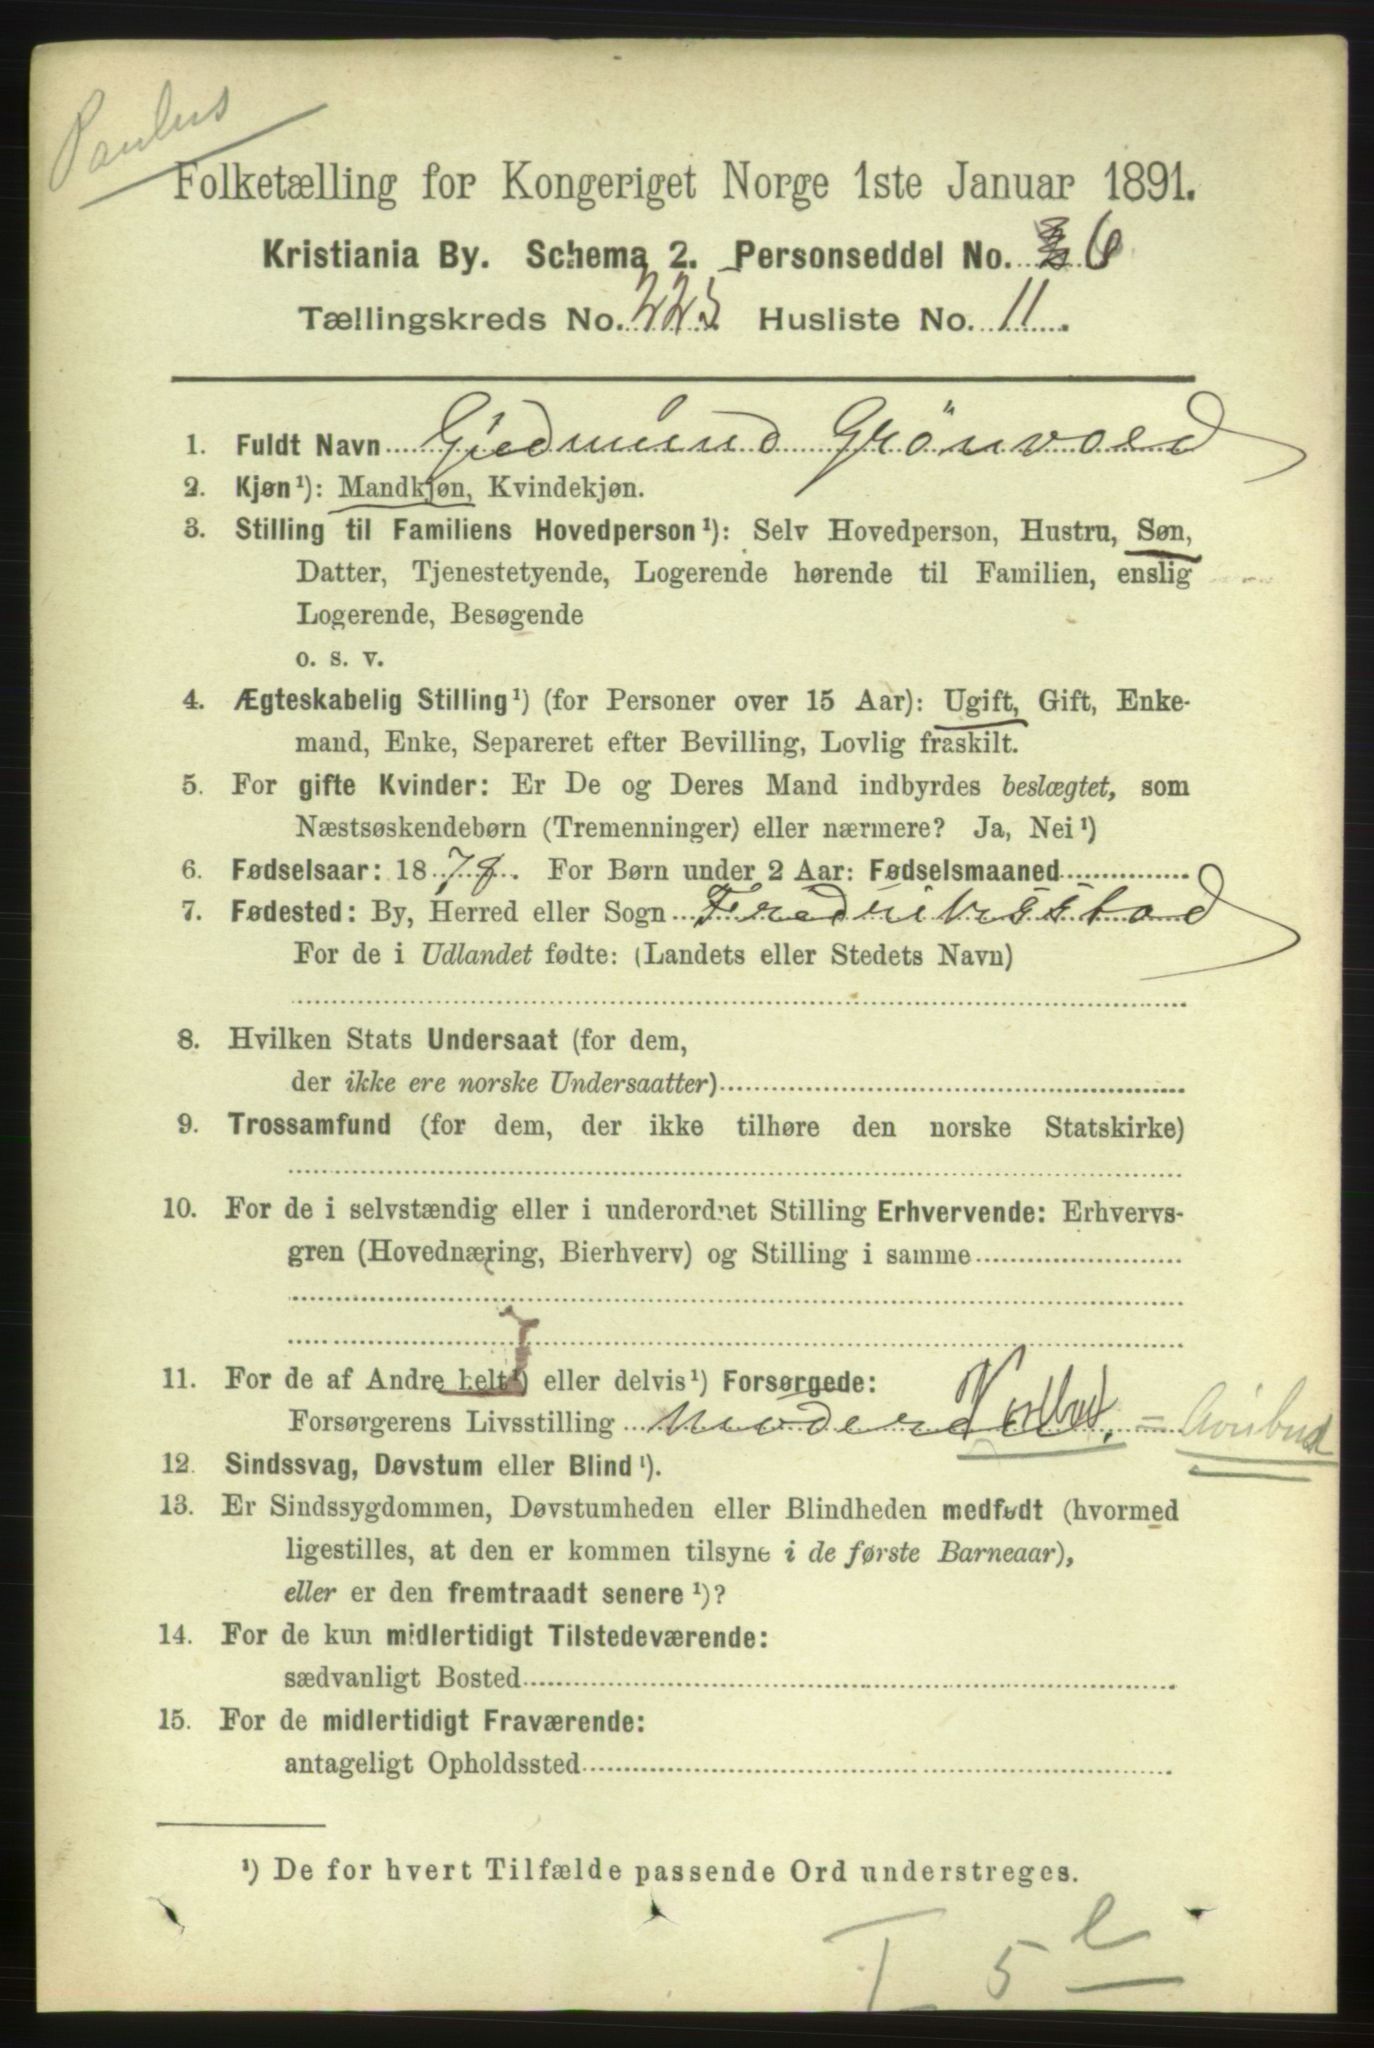 Paulus
Folketælling for Kongeriget Norge 1ste Januar 1891.
Kristiania By. Schema 2. Personseddel No. 6
Tællingskreds No. 225 Husliste No. 11.
1. Fuldt Navn Gudmund Grönvold
2. Kjøn¹): Mandkjøn, Kvindekjøn.
3. Stilling til Familiens Hovedperson¹): Selv Hovedperson, Hustru, Søn,
Datter, Tjenestetyende, Logerende hørende til Familien, enslig
Logerende, Besøgende
o. s. v.
4. Ægteskabelig Stilling¹) (for Personer over 15 Aar): Ugift, Gift, Enke-
mand, Enke, Separeret efter Bevilling, Lovlig fraskilt.
5. For gifte Kvinder: Er De og Deres Mand indbyrdes beslægtet, som
Næstsøskendebørn (Tremenninger) eller nærmere? Ja, Nei¹)
6. Fødselsaar: 187 For Børn under 2 Aar: Fødselsmaaned
7. Fødested: By, Herred eller Sogn Fredriksstad
For de i Udlandet fødte: (Landets eller Stedets Navn)
8. Hvilken Stats Undersaat (for dem,
der ikke ere norske Undersaatter)
9. Trossamfund (for dem, der ikke tilhøre den norske Statskirke)
10. For de i selvstændig eller i underordnet Stilling Erhvervende: Erhvervs-
gren (Hovednæring, Bierhverv) og Stilling i samme
11. For de af Andre helt¹) eller delvis¹) Forsørgede:
Forsørgerens Livsstilling moderen =
12. Sindssvag, Døvstum eller Blind¹).
13. Er Sindssygdommen, Døvstumheden eller Blindheden medfødt (hvormed
ligestilles, at den er kommen tilsyne i de første Barneaar),
eller er den fremtraadt senere¹)?
14. For de kun midlertidigt Tilstedeværende:
sædvanligt Bosted
15. For de midlertidigt Fraværende:
antageligt Opholdssted
¹) De for hvert Tilfælde passende Ord understreges.
I 5 e